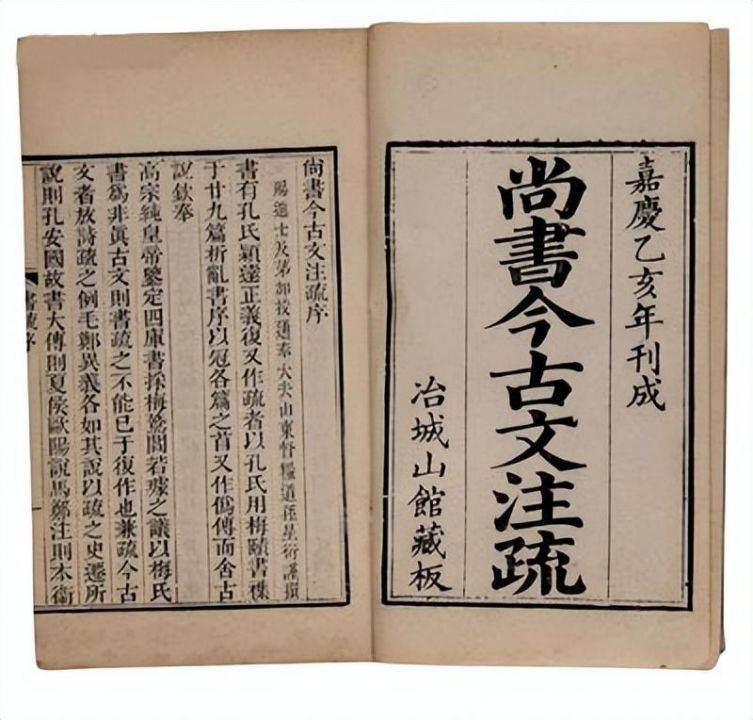 嘉慶乙亥年刊成
尚書今古文注疏
冶城山館藏板
尚書今古文注疏序
賜進士及第授通奉大夫山東督糧道孫星衍謹撰
書有孔氏穎達正義復又作疏者以孔氏用梅賾書襍
于廿九篇析亂書序以冠各篇之首又作僞傳而舍古
說欽奉
高宗純皇帝鑒定四庫書採梅鷟閻若璩之議以梅氏
書爲非眞古文則書疏之不能已于復作也兼疏今古
文者放詩疏之例毛鄭異義各如其說以疏之史遷所
說則孔安國故書大傳則夏侯歐陽說馬鄭注則本衞
書疏序